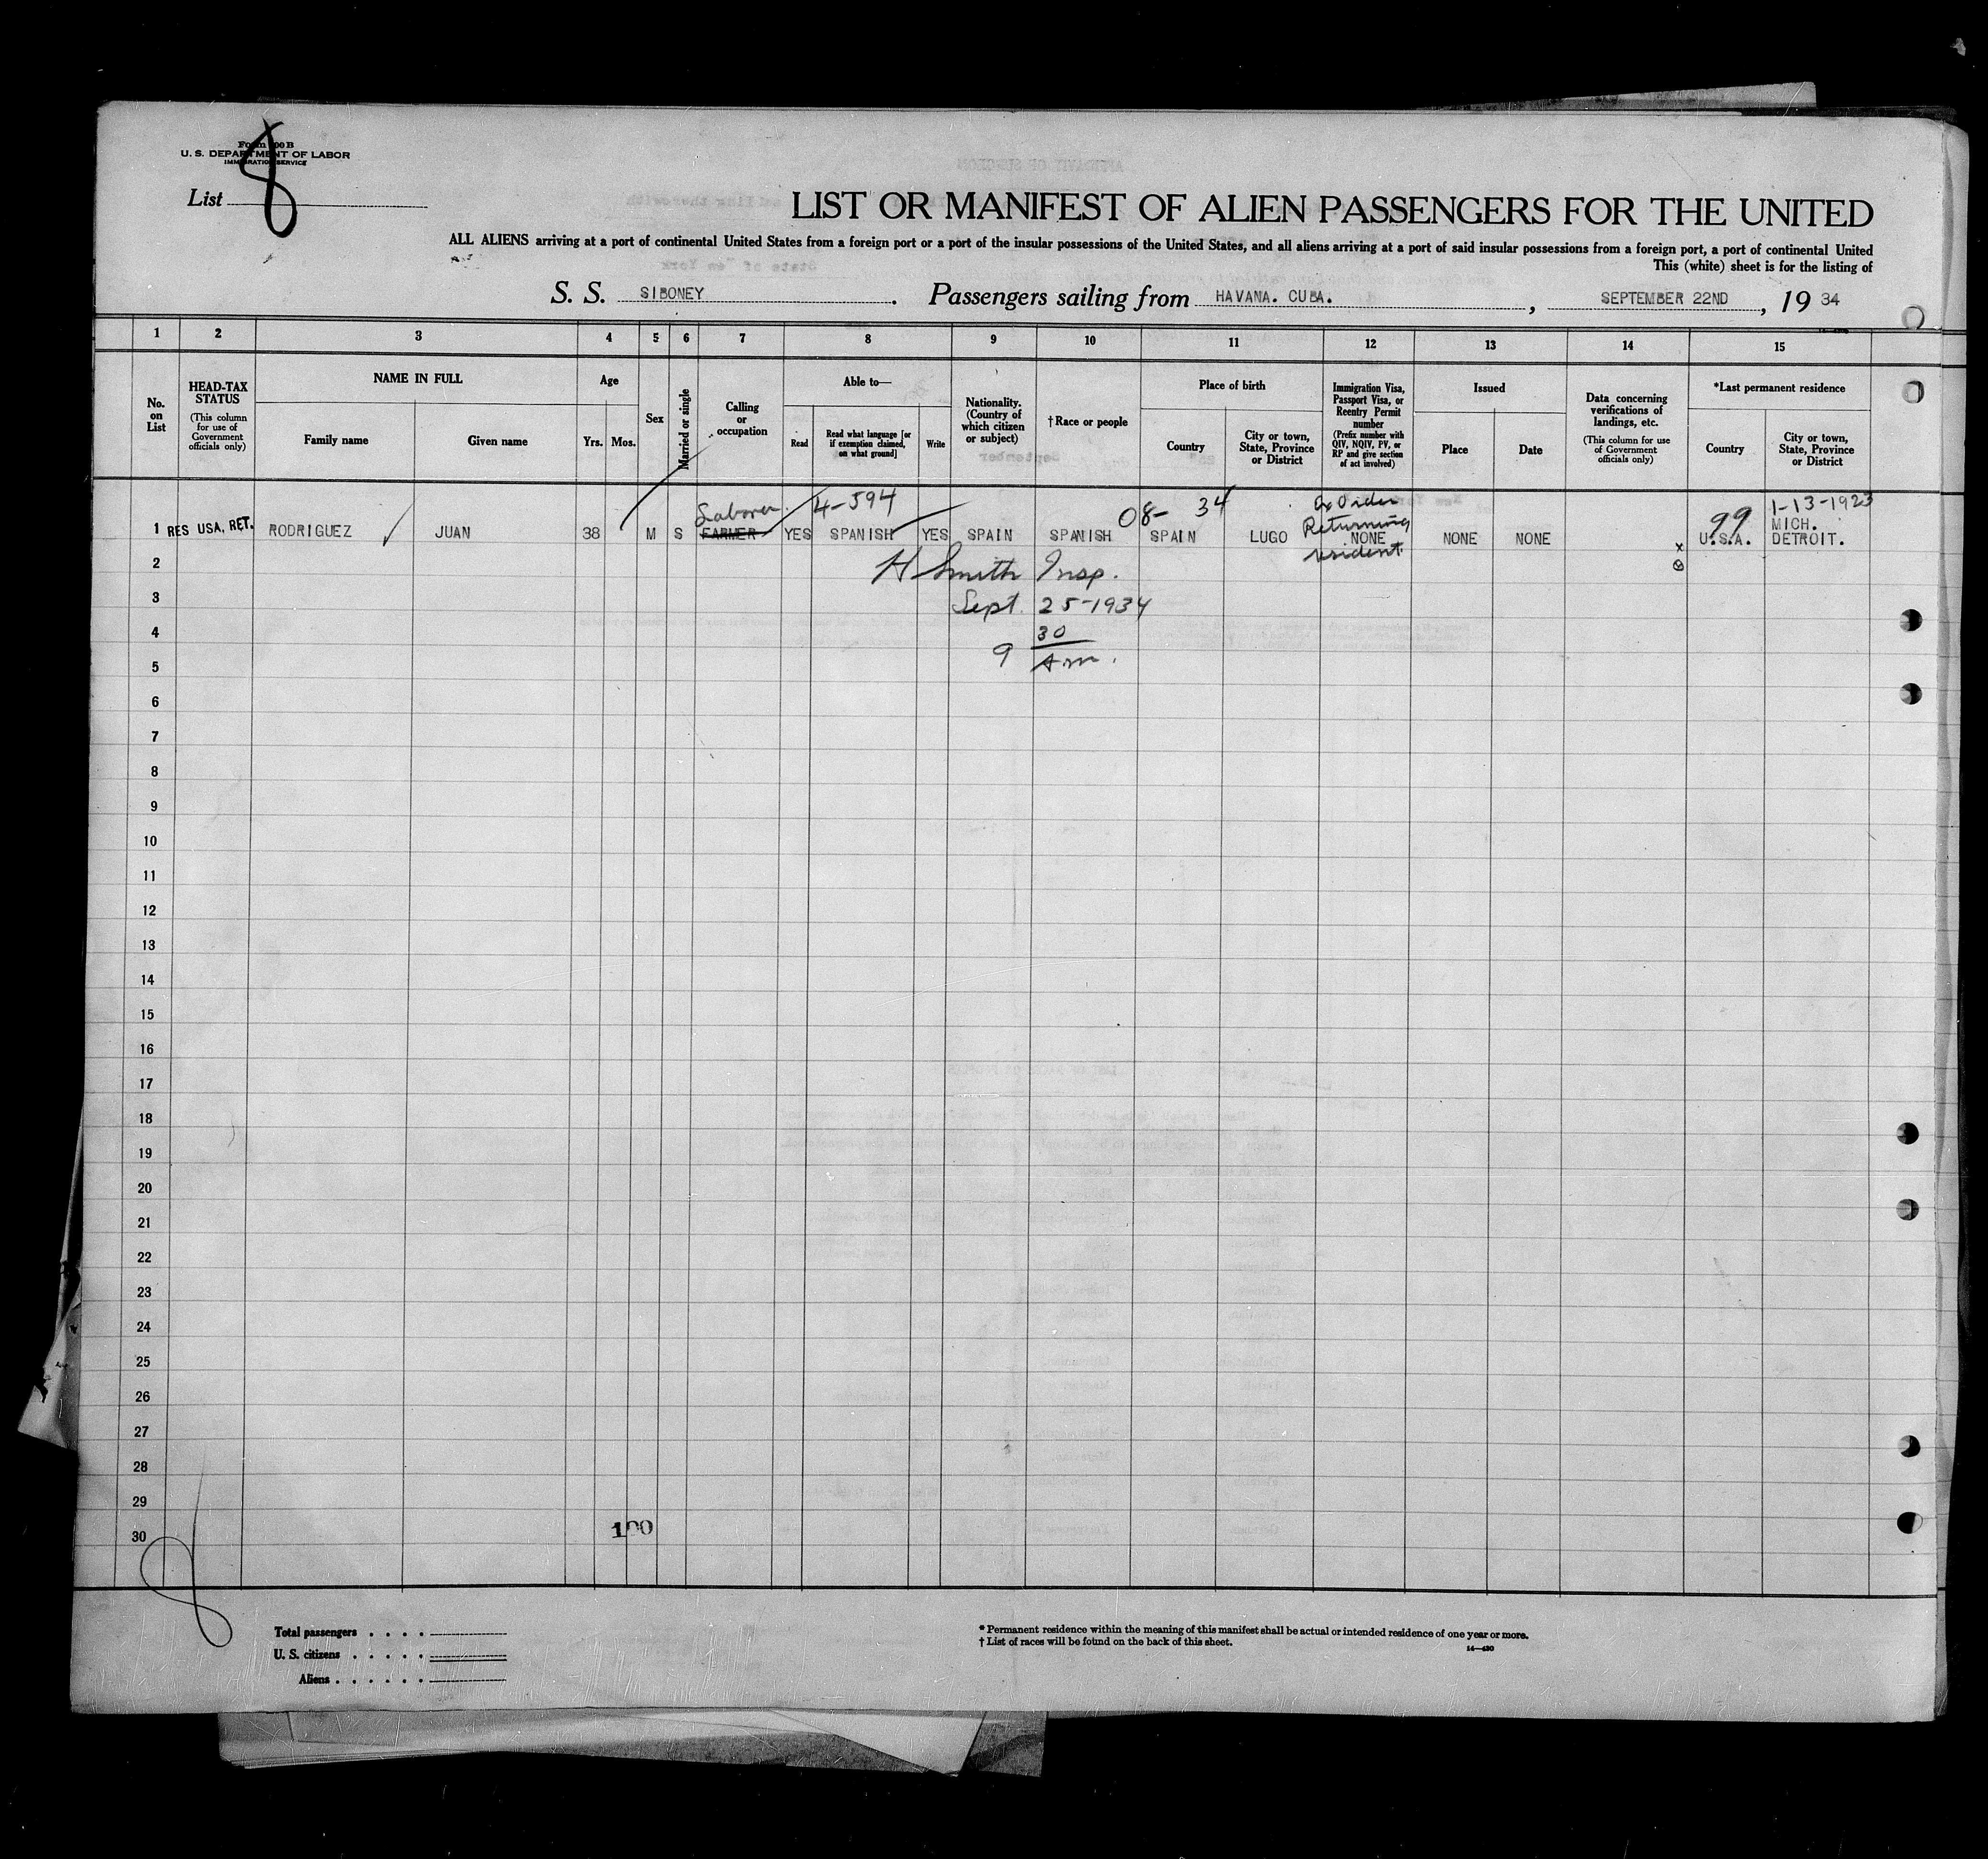 Form 500 B
U. S. DEPARTMENT OF LABOR
IMMIGRATION SERVICE
List 8
LIST OR MANIFEST OF ALIEN PASSENGERS FOR THE UNITED
ALL ALIENS arriving at a port of continental United States from a foreign port or a port of the insular possessions of the United States, and all aliens arriving at a port of said insular possessions from a foreign port, a port of continental United
This (white) sheet is for the listing of
S. S. SIBONEY. Passengers sailing from HAVANA. CUBA., SEPTEMBER 22ND, 19 34
1 2 3 4 5 6 7 8 9 10 11 12 13 14 15
No. on List
HEAD-TAX STATUS
(This column for use of Government officials only)
NAME IN FULL
Family name
Given name
Age
Yrs. Mos.
Sex
Married or single
Calling or occupation
Able to—
Read
Read what language [or if exemption claimed, on what ground]
Write
Nationality. (Country of which citizen or subject)
† Race or people
Place of birth
Country
City or town, State, Province or District
Immigration Visa, Passport Visa, or Reentry Permit number
(Prefix number with QIV, NQIV, PV, or RP and give section of act involved)
Issued
Place
Date
Data concerning verifications of landings, etc.
(This column for use of Government officials only)
*Last permanent residence
Country
City or town, State, Province or District
Laborer 4-594 08- 34 Ex Order 1-13-1923
Returning 99 MICH.
1 RES USA, RET. RODRIGUEZ JUAN 38 M S FARMER YES SPANISH YES SPAIN SPANISH SPAIN LUGO NONE NONE NONE U.S.A. DETROIT.
resident
x
2 H Smith Insp.
3 Sept. 25-1934
4 30
5 9 A.m.
6
7
8
9
10
11
12
13
14
15
16
17
18
19
20
21
22
23
24
25
26
27
28
29
30 190
8
Total passengers . . . .
U. S. citizens . . . . .
Aliens . . . . . .
* Permanent residence within the meaning of this manifest shall be actual or intended residence of one year or more.
† List of races will be found on the back of this sheet.
14—430